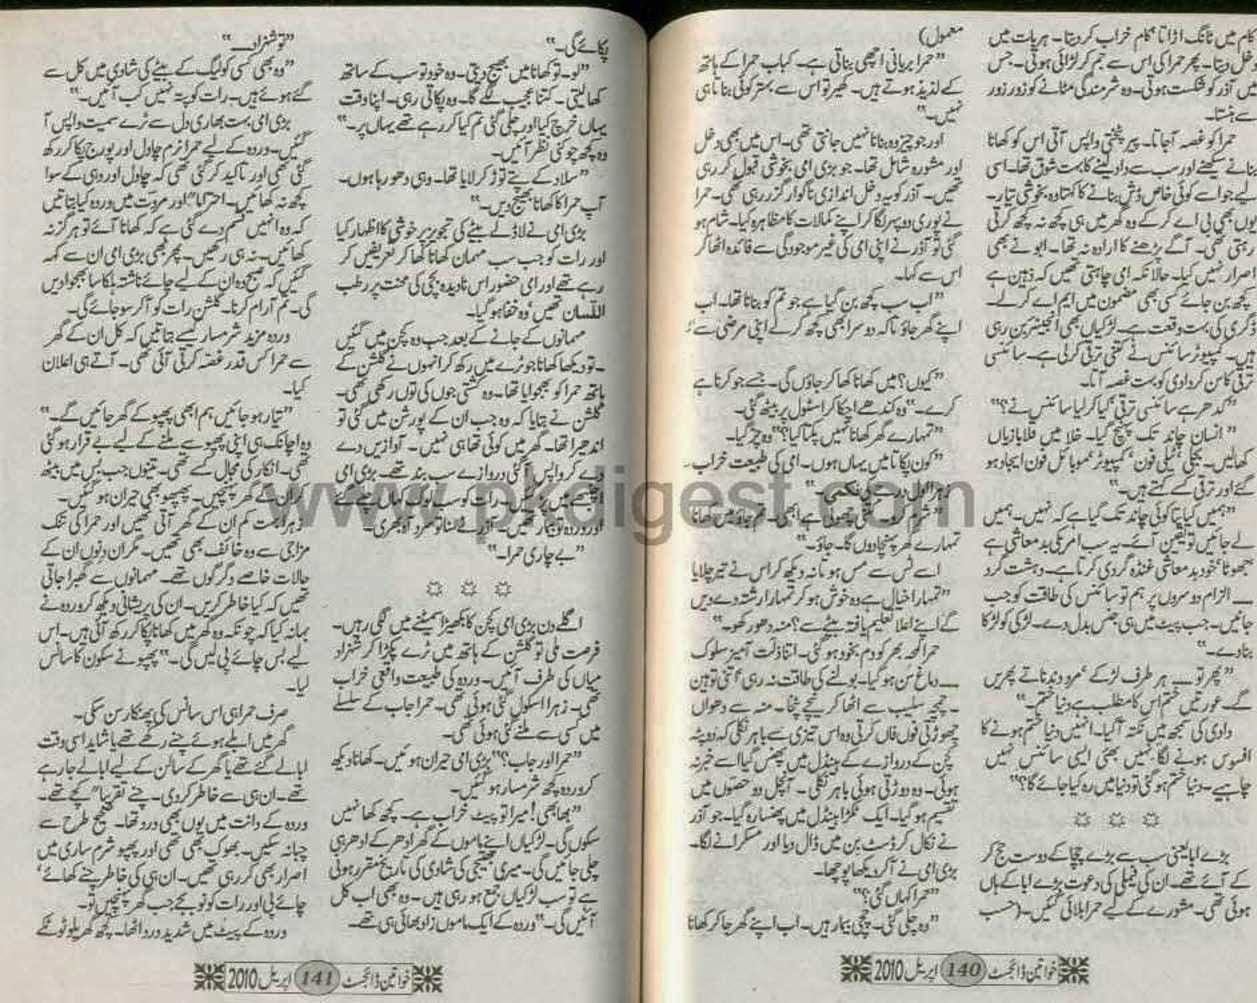 کام میں ٹانگ اڑاتا، کام خراب کر دیتا۔ ہر بات میں
دخل دیتا۔ پھر حمرا کی اس سے جم کر لڑائی ہوتی۔ جس
میں آذر کو شکست ہوتی۔ وہ شرمندگی مٹانے کو زور زور
سے ہنستا۔
حمرا کو غصہ آجاتا۔ پیر پٹختی واپس آتی اس کو کھانا
بنانے سیکھنے اور سب سے داد لینے کا بہت شوق تھا۔ اسی
لیے جو اسے کوئی خاص ڈش بنانے کا کہتا وہ بخوشی تیار۔
یوں بھی بی اے کر کے وہ گھر میں ہی کچھ نہ کچھ کرتی
رہتی تھی۔ آگے پڑھنے کا ارادہ نہ تھا۔ ابو نے بھی
اصرار نہیں کیا۔ حالانکہ امی چاہتی تھیں کہ ذہین ہے
کچھ بن جائے کسی بھی مضمون میں ایم اے کر لے۔
ڈگری کی بہت وقعت ہے۔ لڑکیاں بھی انجینئر بن رہی
ہیں۔ کمپیوٹر سائنس نے کتنی ترقی کر لی ہے۔ سائنسی
ترقی کا سن کر دادی کو بہت غصہ آتا۔
"کدھر ہے سائنسی ترقی، کیا کر لیا سائنس نے؟"
"انسان چاند تک پہنچ گیا۔ خلا میں قلابازیاں
کھالیں۔ بجلی، ٹیلی فون، کمپیوٹر، موبائل فون ایجاد ہو
گئے اور ترقی کے کہتے ہیں۔"
"ہمیں کیا پتا کوئی چاند تک گیا ہے کہ نہیں۔ ہمیں
لے جائیں تو یقین آئے۔ یہ سب امریکی بدمعاشی ہے
جھوٹا، خود بدمعاشی غنڈہ گردی کرتا ہے۔ دہشت گرد
۔۔۔ الزام دوسروں پر ہم تو سائنس کی طاقت کو جب
جانیں۔ جب پیٹ میں ہی جنس بدل دے۔ لڑکی کو لڑکا
بنا دے۔"
"پھر تو۔۔۔ ہر طرف لڑکے، مرد دندناتے پھریں
گے۔ عورتیں ختم اس کا مطلب ہے دنیا ختم۔"
دادی کی سمجھ میں نکتہ آگیا۔ انہیں دنیا ختم ہونے کا
افسوس ہونے لگا۔ نہیں بھئی ایسی سائنس نہیں
چاہیے۔ دنیا ختم ہو گئی تو دنیا میں رہ کیا جائے گا؟"
☼ ☼ ☼
بڑے ابا یعنی سب سے بڑے چچا کے دوست حج کر
کے آئے تھے۔ ان کی فیملی کی دعوت بڑے ابا کے ہاں
ہوئی تھی۔ مشورے کے لیے حمرا بلائی گئیں۔ (حسب
معمول)
"حمرا بریانی اچھی بناتی ہے۔ کباب حمرا کے ہاتھ
کے لذیذ ہوتے ہیں۔ کھیر تو اس سے بہتر کوئی بناتا ہی
نہیں۔"
اور جو چیز وہ بنانا نہیں جانتی تھی۔ اس میں بھی دخل
اور مشورہ شامل تھا۔ جو بڑی امی بخوشی قبول کر رہی
تھیں۔ آذر کو یہ دخل اندازی ناگوار گزر رہی تھی۔ حمرا
نے پوری دوپہر لگا کر اپنے کمالات کا مظاہرہ کیا۔ شام ہو
گئی تو آذر نے اپنی امی کی غیر موجودگی سے فائدہ اٹھا کر
اس سے کہا۔
"اب سب کچھ بن گیا ہے جو تم کو بنانا تھا۔ اب
اپنے گھر جاؤ تا کہ دوسرا بھی کچھ کر لے اپنی مرضی سے۔"
"کیوں؟ میں کھانا کھا کر جاؤں گی۔ جسے جو کرنا ہے
کرے۔" وہ کندھے اچکا کر اسٹول پر بیٹھ گئی۔
"تمہارے گھر کھانا نہیں پکتا کیا؟" وہ چڑ گیا۔
"کون پکاتا میں یہاں ہوں۔ امی کی طبیعت خراب۔
زہرا اول درجے کی نکمی۔"
تمہارے گھر پہنچا دوں گا۔ جاؤ۔"
اسے ٹس سے مس ہوتا نہ دیکھ کر اس نے تیر چلایا
"تمہارا خیال ہے وہ خوش ہو کر تمہارا رشتہ دے دیں
گے اپنے اعلا تعلیم یافتہ بیٹے سے؟ منہ دھو رکھو۔"
حمرا لمحہ بھر کو دم بخود ہو گئی۔ اتنا ذلت آمیز سلوک
۔۔۔ دماغ سن ہو گیا۔ بولنے کی طاقت نہ رہی، اتنی توہین
۔ چمچہ سلیب سے اٹھا کر نیچے پٹخا۔ منہ سے دھواں
چھوڑتی فوں فاں کرتی وہ اس تیزی سے باہر نکلی کہ دوپٹہ
کچن کے دروازے کے ہینڈل میں پھنس گیا اسے خبر نہ
ہوئی۔ وہ دوڑتی ہوئی باہر نکلی۔ آنچل دو حصوں میں
تقسیم ہو گیا۔ ایک ٹکڑا ہینڈل میں پھنسا رہ گیا۔ جو آذر
نے نکال کر ڈسٹ بن میں ڈال دیا اور مسکرانے لگا۔
بڑی امی نے آکر دیکھا پوچھا۔
"حمرا کہاں گئی؟"
"وہ چلی گئی۔ چچی بیمار ہیں۔ اب اپنے گھر جا کر کھانا
خواتین ڈائجسٹ 140 اپریل 2010
پکائے گی۔"
"لو۔ تو کھانا میں بھیج دیتی۔ وہ خود تو سب کے ساتھ
کھا لیتی۔ کتنا عجیب لگے گا۔ وہ پکاتی رہی۔ اپنا وقت
یہاں خرچ کیا اور چلی گئی تم کیا کر رہے تھے یہاں پر۔"
وہ کچھ چو کنی نظر آئیں۔
"سلاد کے پتے توڑ کر لایا تھا۔ وہی دھو رہا ہوں۔
آپ حمرا کا کھانا بھیج دیں۔"
بڑی امی نے لاڈلے بیٹے کی تجویز پر خوشی کا اظہار کیا
اور رات کو جب سب مہمان کھانا کھا کر تعریفیں کر
رہے تھے اور امی حضور اس نادیدہ بچی کی محنت پر رطب
اللسان تھیں، وہ خفا ہو گیا۔
مہمانوں کے جانے کے بعد جب وہ کچن میں گئیں
۔ تو دیکھا کھانا جو ٹرے میں رکھ کر انہوں نے گلشن کے
ہاتھ حمرا کو بھجوایا تھا۔ وہ کشتی جوں کی توں رکھی تھی۔
گلشن نے بتایا کہ وہ جب ان کے پورشن میں گئی تو
اندھیرا تھا۔ گھر میں کوئی تھا ہی نہیں۔ آوازیں دے
دے کر واپس آ گئی دروازے سب بند تھے۔ بڑی امی
"بے چاری حمرا۔"
☼ ☼ ☼
اگلے دن بڑی امی کچن کا بکھیڑا سمیٹنے میں لگی رہیں۔
فرصت ملی تو گلشن کے ہاتھ میں ٹرے پکڑا کر شہزاد
میاں کی طرف آئیں۔ وردہ کی طبیعت واقعی خراب
تھی۔ زہرا اسکول گئی ہوئی تھی۔ حمرا جاب کے سلسلے
میں کسی سے ملنے گئی ہوئی تھی۔
"حمرا اور جاب؟" بڑی امی حیران ہوئیں۔ کھانا دیکھ
کر وردہ کچھ شرمسار ہو گئیں۔
"بھابھی! میرا تو پیٹ خراب ہے۔ کچھ کھا نہیں
سکوں گی۔ لڑکیاں اپنے ماموں کے گھر ادھر کے ادھر ہی
چلی جائیں گی۔ میری بھتیجی کی شادی کی تاریخ مقرر ہونی
ہے تو سب لڑکیاں جمع ہو رہی ہیں۔ وہ بھی اب کل
آئیں گی۔" وردہ کے ایک ماموں زاد بھائی ہی تھے۔
"تو شہزاد۔۔۔"
"وہ بھی کسی کولیگ کے بیٹے کی شادی میں کل سے
گئے ہوئے ہیں۔ رات کو پتہ نہیں کب آئیں۔"
بڑی امی بہت بھاری دل سے ٹرے سمیت واپس آ
گئیں۔ وردہ کے لیے حمرا نرم چاول اور پورج پکا کر رکھ
گئی تھی اور تاکید کر گئی تھی کہ چاول اور دہی کے سوا
کچھ نہ کھائیں۔ احتراماً اور مروت میں وردہ کیا بتاتیں
کہ وہ انہیں قسم دے گئی ہے کہ کھانا آئے تو ہرگز نہ
کھائیں۔ نہ ہی رکھیں۔ پھر بھی بڑی امی ان سے کہہ
گئیں کہ صبح وہ ان کے لیے جائے ناشتہ ہلکا سا بھجوا دیں
گی۔ تم آرام کرنا۔ گلشن رات کو آکر سو جائے گی۔
وردہ مزید شرمسار کیسے بتاتیں کہ کل ان کے گھر
سے حمرا کس قدر غصہ کرتی آئی تھی۔ آتے ہی اعلان
کیا۔
"تیار ہو جائیں ہم ابھی پھپو کے گھر جائیں گے۔"
وہ اچانک ہی اپنی پھپو سے ملنے کے لیے بے قرار ہو گئی
تھی۔ انکار کی مجال کسے تھی۔ تینوں جب بس میں بیٹھ
کر ان کے گھر پہنچیں۔ پھپھو بھی حیران ہو گئیں۔
زہرا بہت کم ان کے گھر آتی تھیں اور حمرا کی تنک
مزاجی سے وہ خائف بھی تھیں۔ مگر ان دنوں ان کے
حالات خاصے دگرگوں تھے۔ مہمانوں سے گھبرا جاتی
تھیں کہ کیا خاطر کریں۔ ان کی پریشانی دیکھ کر وردہ نے
بہانہ کیا کہ چونکہ وہ گھر میں کھانا پکا کر رکھ آئی ہیں۔ اس
لیے بس چائے پی لیں گی۔" پھپو نے سکون کا سانس
لیا۔
صرف حمرا ہی اس سانس کی پھنکار سن سکی۔
گھر میں ابلے ہوئے چنے رکھے تھے یا شاید اسی وقت
ابالے گئے تھے یا گھر کے سالن کے لیے ابالے جا رہے
تھے۔ ان ہی سے خاطر کر دی۔ چنے تقریباً کچے تھے۔
وردہ کے دانت میں یوں بھی درد تھا۔ صحیح طرح سے
چبا نہ سکیں۔ بھوک بھی تھی اور پھپو شرم ساری میں
اصرار بھی کر رہی تھیں۔ ان ہی کی خاطر چنے کھائے،
چائے پی اور رات کو نو بجے جب گھر پہنچیں تو۔
وردہ کے پیٹ میں شدید درد اٹھا۔ کچھ گھریلو ٹوٹکے
خواتین ڈائجسٹ 141 اپریل 2010
www.pkdigest.com